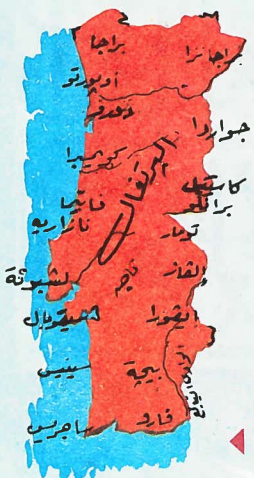 براجا
براجانزا
أوبورتو
جواردا
كويمبرا
البرتغال
كاستيلو
برانكو
فاتيما
نازاريه
تومار
إلفاز
لشبونة
تاجه
سيتوبال
ايفورا
سينيس
بيجة
فارو
ساجريس